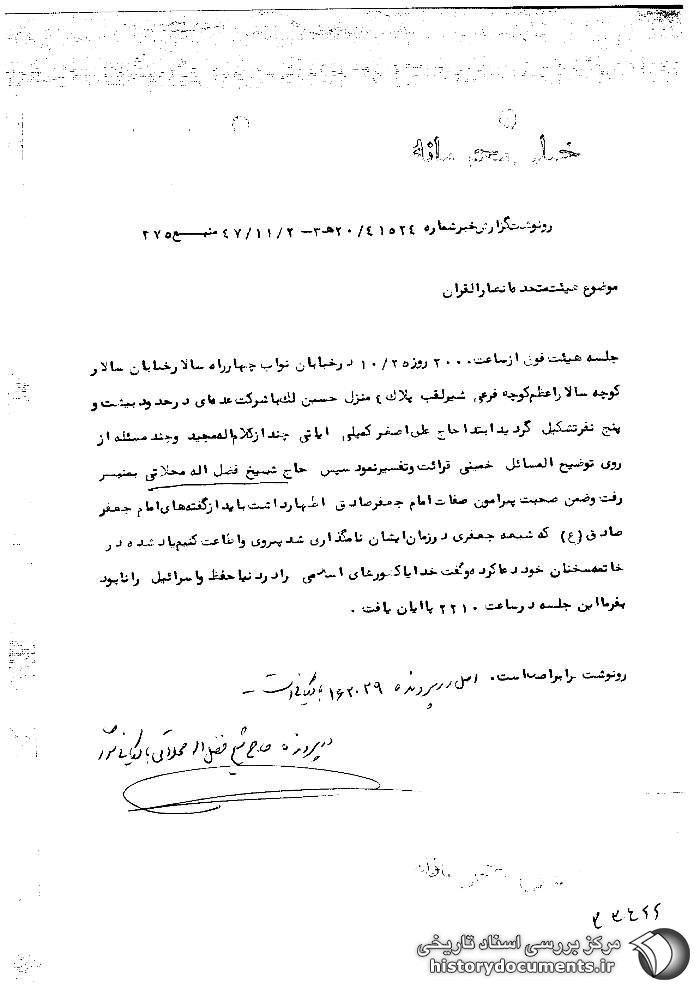 خیلی محرمانه
رونوشت گزارش خبر شماره ۲۰/۴۱۵۲۴ هـ ۳ – ۴۷/۱۱/۲ منبع ۲۷۵
موضوع هیئت متحده انصارالقران
جلسه هیئت فوق از ساعت ۲۰۰۰ روز ۱۰/۲۵ در خیابان نواب چهارراه سالار خیابان سالار
کوچه سالار اعظم کوچه فرعی شیرلقب پلاک ۴ منزل حسن لک با شرکت عده‌ای در حدود بیست و
پنج نفر تشکیل گردید ابتدا حاج علی اصغر کمیلی ایاتی چند از کلام اله مجید و چند مسئله از
روی توضیح المسائل خمینی قرائت و تفسیر نمود سپس حاج شیخ فضل اله محلاتی بمنبر
رفت و ضمن صحبت پیرامون صفات امام جعفر صادق اظهار داشت باید از گفته‌های امام جعفر
صادق (ع) که شیعه جعفری در زمان ایشان نامگذاری شد پیروی و اطاعت کنیم یاد شده در
خاتمه سخنان خود دعا کرده و گفت خدایا کشورهای اسلامی را در دنیا حفظ و اسرائیل را نابود
بفرما این جلسه در ساعت ۲۲۱۰ پایان یافت .
رونوشت برابر اصل است . اصل در پرونده ۱۶۳۰۲۹ بایگانی است –
در پرونده حاج شیخ فضل اله محلاتی بایگانی شود
مرکز بررسی اسناد تاریخی
historydocuments.ir